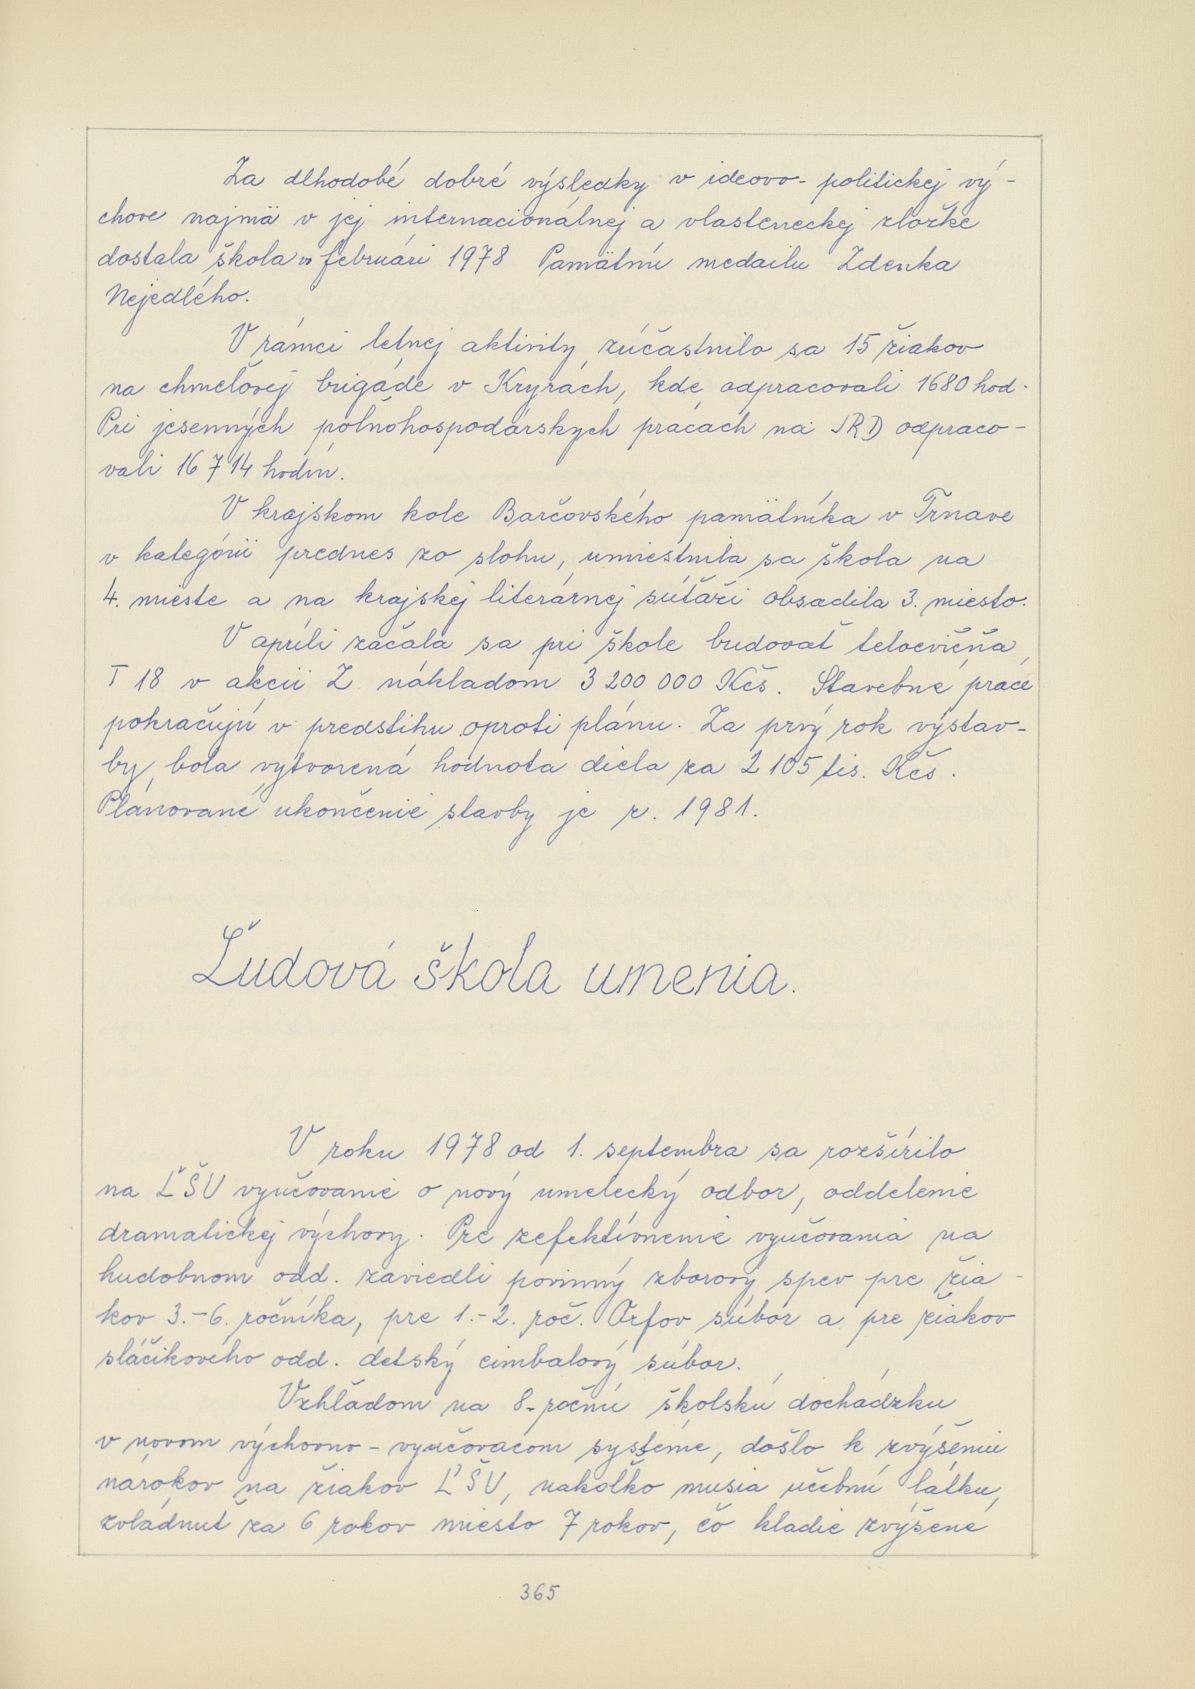 Za dlhodobé dobré výsledky v ideovo-politickej vý-
chove najmä v jej internacionálnej a vlasteneckej zložke
dostala škola v februári 1978 Pamätnú medailu Zdenka
Nejedlého.
V rámci letnej aktivity zúčastnilo sa 15 žiakov
na chmeľovej brigáde v Kryrách, kde odpracovali 1680 hod.
Pri jesenných poľnohospodárskych prácach na JRD odpraco-
vali 16 714 hodín.
V krajskom kole Barčovského pamätníka v Trnave
v kategórii prednes zo slohu, umiestnila sa škola na
4. mieste a na krajskej literárnej súťaži obsadila 3. miesto.
V apríli začala sa pri škole budovať telocvičňa
T 18 v akcii Z nákladom 3 200 000 Kčs. Stavebné práce
pokračujú v predstihu oproti plánu. Za prvý rok výstav-
by bola vytvorená hodnota diela za 2 105 tis. Kčs.
Plánované ukončenie stavby je r. 1981.
Ľudová škola umenia.
V roku 1978 od 1. septembra sa rozšírilo
na ĽŠU vyučovanie o nový umelecký odbor, oddelenie
dramatickej výchovy. Pre zefektívnenie vyučovania na
hudobnom odd. zaviedli povinný zborový spev pre žia-
kov 3.-6. ročníka, pre 1.-2. roč. Orfov súbor a pre žiakov
sláčikového odd. detský cimbalový súbor.
Vzhľadom na 8-ročnú školskú dochádzku
v novom výchovno-vyučovacom systéme, došlo k zvýšeniu
nárokov na žiakov ĽŠU, nakoľko musia učebnú látku
zvládnuť za 6 rokov miesto 7 rokov, čo kladie zvýšené
365